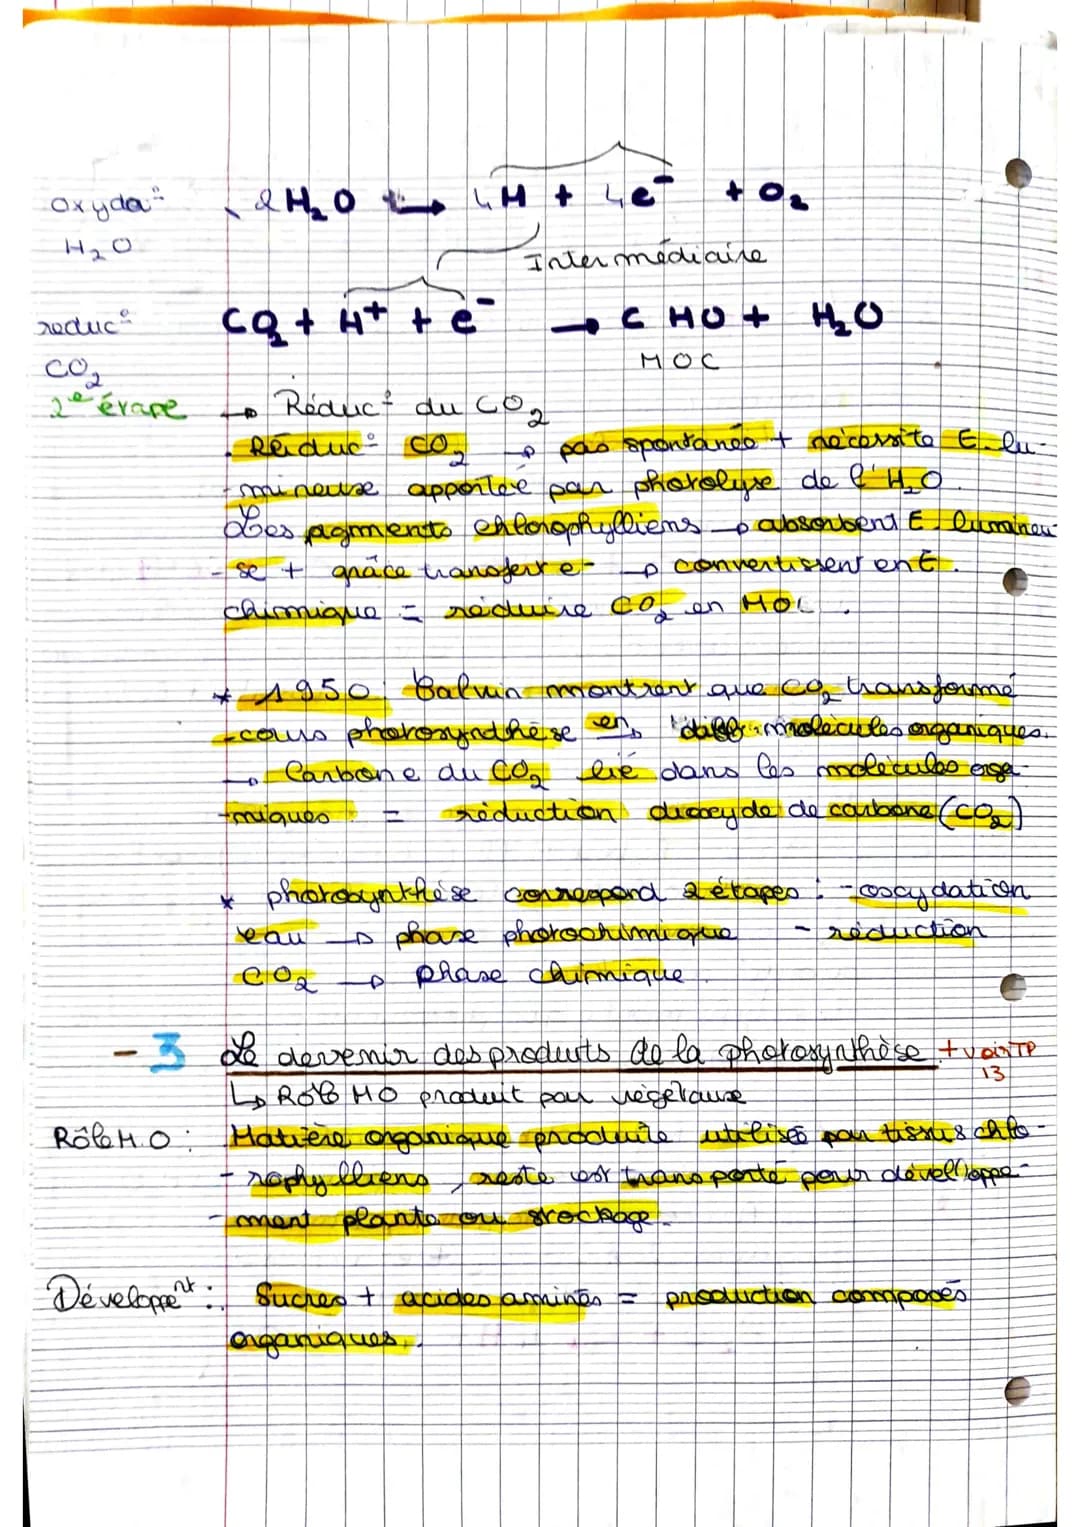 oxyda° 2H₂O → 4H + 4e⁻ + O₂
H₂O
Intermédiaire
reduc° CO₂ + H⁺ + e⁻ → C HO + H₂O
CO₂ MOC
2e étape → Réduc° du CO₂
. Réduc° CO₂ → pas spontanée + nécessite E. lu-
- mineuse apportée par photolyse de l'H₂O.
Les pgments chlorophylliens → absorbent E lumineu-
- se + grâce transfert e- → convertissent en E.
chimique = réduire CO₂ en MOC.
* 1950: Calvin montrent que CO₂ transformé
cours photosynthèse en diff. molécules organiques.
→ Carbone du CO₂ lié dans les molécules orga-
-niques = réduction dioxyde de carbone (CO₂)
* photosynthèse correspond 2 étapes : - oxydation
eau → phase photochimique - réduction
CO₂ → phase chimique.
- 3 Le devenir des produits de la photosynthèse + voir TP 13
↳ Rôle MO produit par végétaux
Rôle M.O : Matière organique produite utilisé par tissus chlo-
- rophylliens, reste est transporté pour dévelloppe-
- ment plante ou stockage.
Développent : Sucres + acides aminés = production composés
organiques.